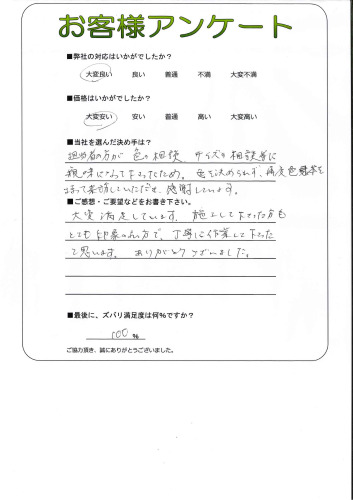 お客様アンケート
■弊社の対応はいかがでしたか？
大変良い 良い 普通 不満 大変不満
■価格はいかがでしたか？
大変安い 安い 普通 高い 大変高い
■当社を選んだ決め手は？
担当者の方が 色の相談、サイズの相談等に
親味になって下さったため。色を決められず、再度色見本を
持って来訪していただき、感謝しています。
■ご感想・ご要望などをお書き下さい。
大変満足しています。施工して下さった方も
とても印象のいい方で、丁寧に作業して下さった
と思います。ありがとうございました。
■最後に、ズバリ満足度は何%ですか？
100 %
ご協力頂き、誠にありがとうございました。